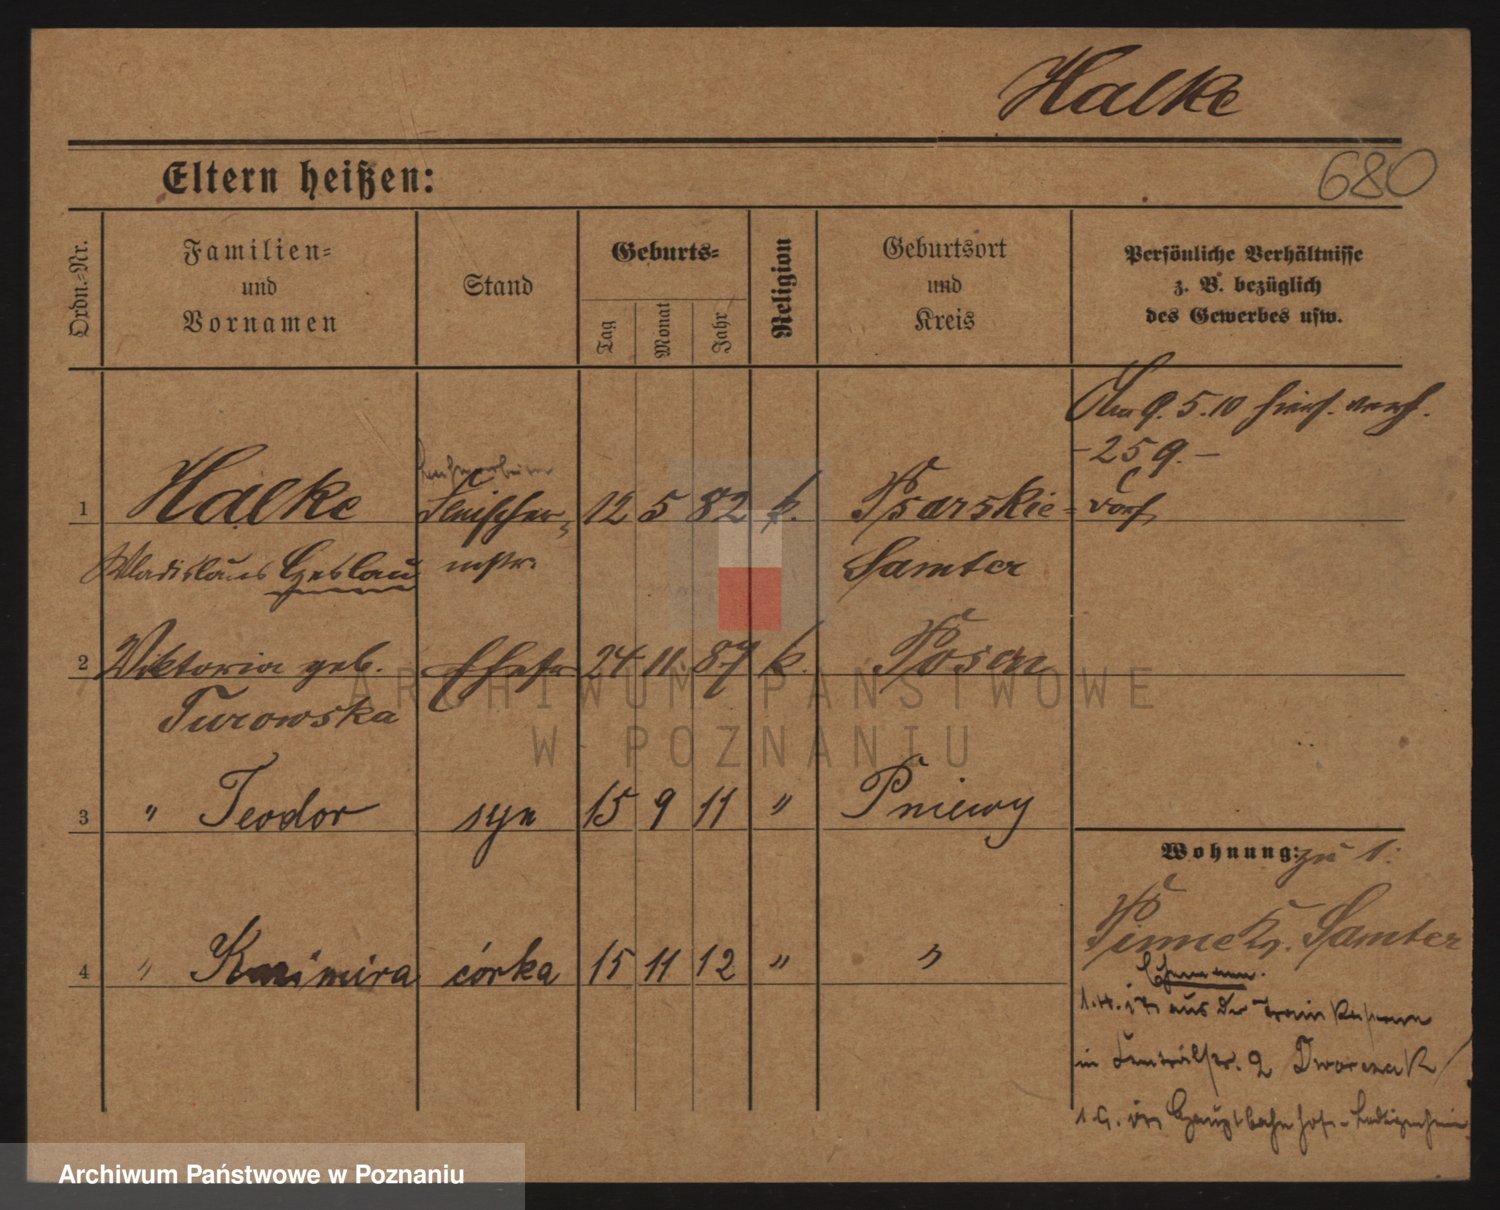 Halke
680
Eltern heißen:
Ordn.-Nr.
Familien- und Vornamen
Stand
Geburts-
Tag Monat Jahr
Religion
Geburtsort und Kreis
Persönliche Verhältnisse z. B. bezüglich des Gewerbes usw.
Am 9. 5. 10 hier. verh.
- 259. -
1 Halke Fleischer- 12 5 82 k. Psarskie- dorf
Wladislaus Geslaus mstr. Samter
2 Viktoria geb. Ehefr 24 11. 87 k. Posen
Turowska
3 " Teodor syn 15 9 11 " Pniewy
Wohnung: zu 1:
Pinne Kr. Samter
4 " Kazimira córka 15 11 12 " "
Ehemann.
aus der Train
in 2 Dworczak
1. G. in Hauptbahnhof-
ARCHIWUM PAŃSTWOWE
W POZNANIU
Archiwum Państwowe w Poznaniu